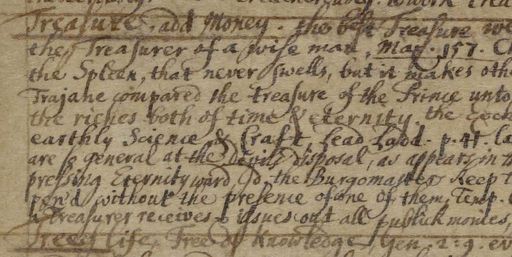 Treasure, add Money. the best Treasure we
the Treasurer of a wise man, Mag. 157. Ch
the Spleen, that never swells, but it makes othe
Trajane compared the treasure of the Prince unto
the riches both of time & eternity. the
earthly Science & Craft, Lead Ladd. p. 41. la
are so general at the devils disposal, as appears in
pressing Eternity ward, the Burgomasters keep
pen'd without the presence of one of them, Temp.
a treasurer receives & issues out all publick monies,
Tree of life, Tree of Knowledge, Gen. 2:9. ev